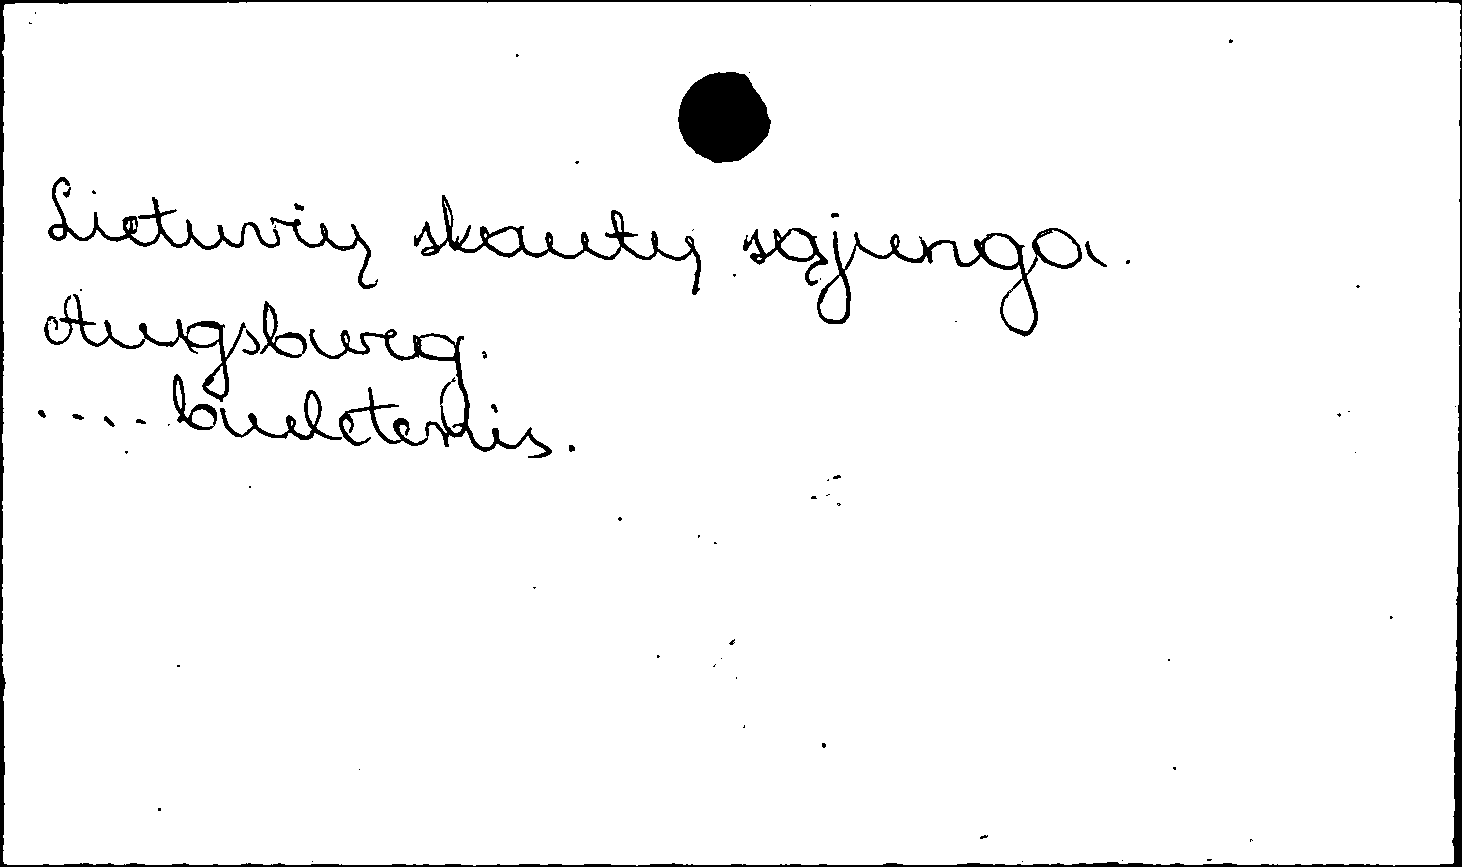 Lietuvių skautų sąjunga.
Augsburg.
.... biuletenis.